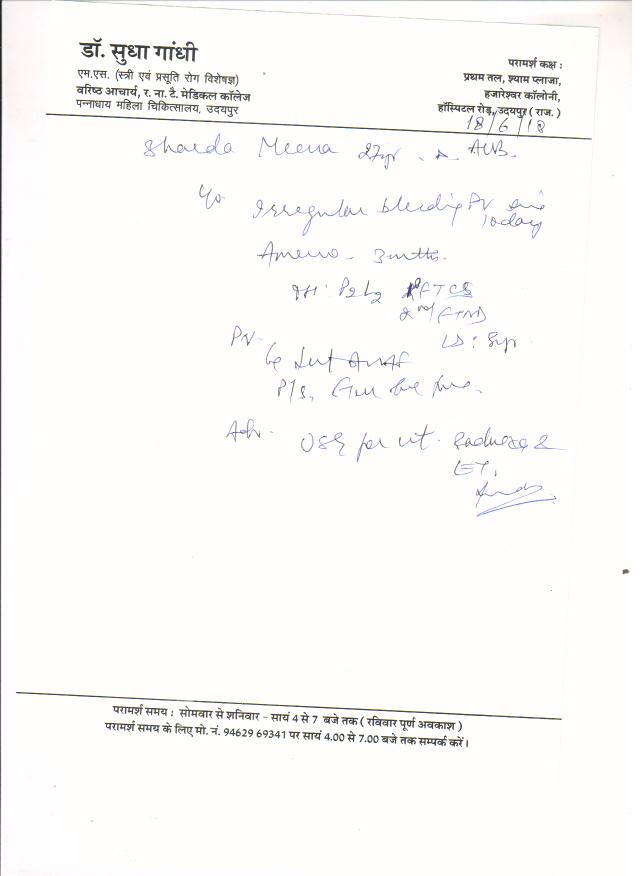 डॉ. सुधा गांधी
एम.एस. (स्त्री एवं प्रसूति रोग विशेषज्ञ)
वरिष्ठ आचार्य, र. ना. टै. मेडिकल कॉलेज
पन्नाधाय महिला चिकित्सालय, उदयपुर
परामर्श कक्ष :
प्रथम तल, श्याम प्लाजा,
हजारेश्वर कॉलोनी,
हॉस्पिटल रोड़, उदयपुर ( राज. )
18/6/18
Sharda Meena 27yr AUB.
Irregular bleeding PV since
10 day
Ameno - 3 mths.
OH: P2L2 1st FTCS
2nd FTND
LD: 8yr.
PV-
P/S,
Adv. USG for ut. &
ET,
परामर्श समय : सोमवार से शनिवार - सायं 4 से 7 बजे तक ( रविवार पूर्ण अवकाश )
परामर्श समय के लिए मो. नं. 94629 69341 पर सायं 4.00 से 7.00 बजे तक सम्पर्क करें।